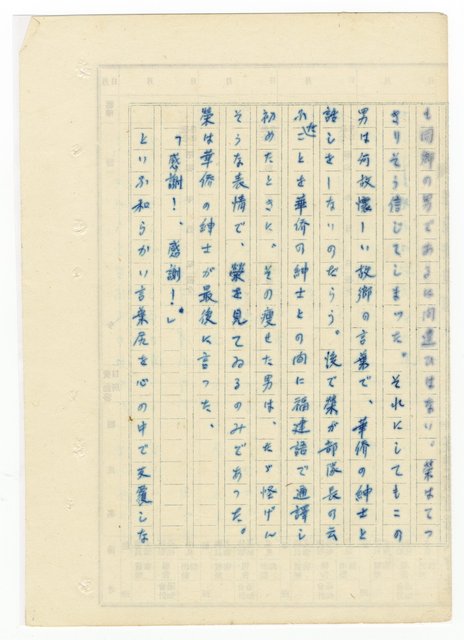 も同郷の男であるに間違ひはない。榮はてつ
きりそう信じてしまつた。それにしてもこの
男は何故懐しい故郷の言葉で、華僑の紳士と
話しをしないのだらう。後で榮が部隊長の云
ふことを華僑の紳士との間に福建語で通譯し
初めたときに、その瘦せた男は、たゞ怪げん
そうな表情で、榮を見てゐるのみであつた。
榮は華僑の紳士が最後に言つた、
「感謝！、感謝！」
といふ和らかい言葉尻を心の中で反覆しな